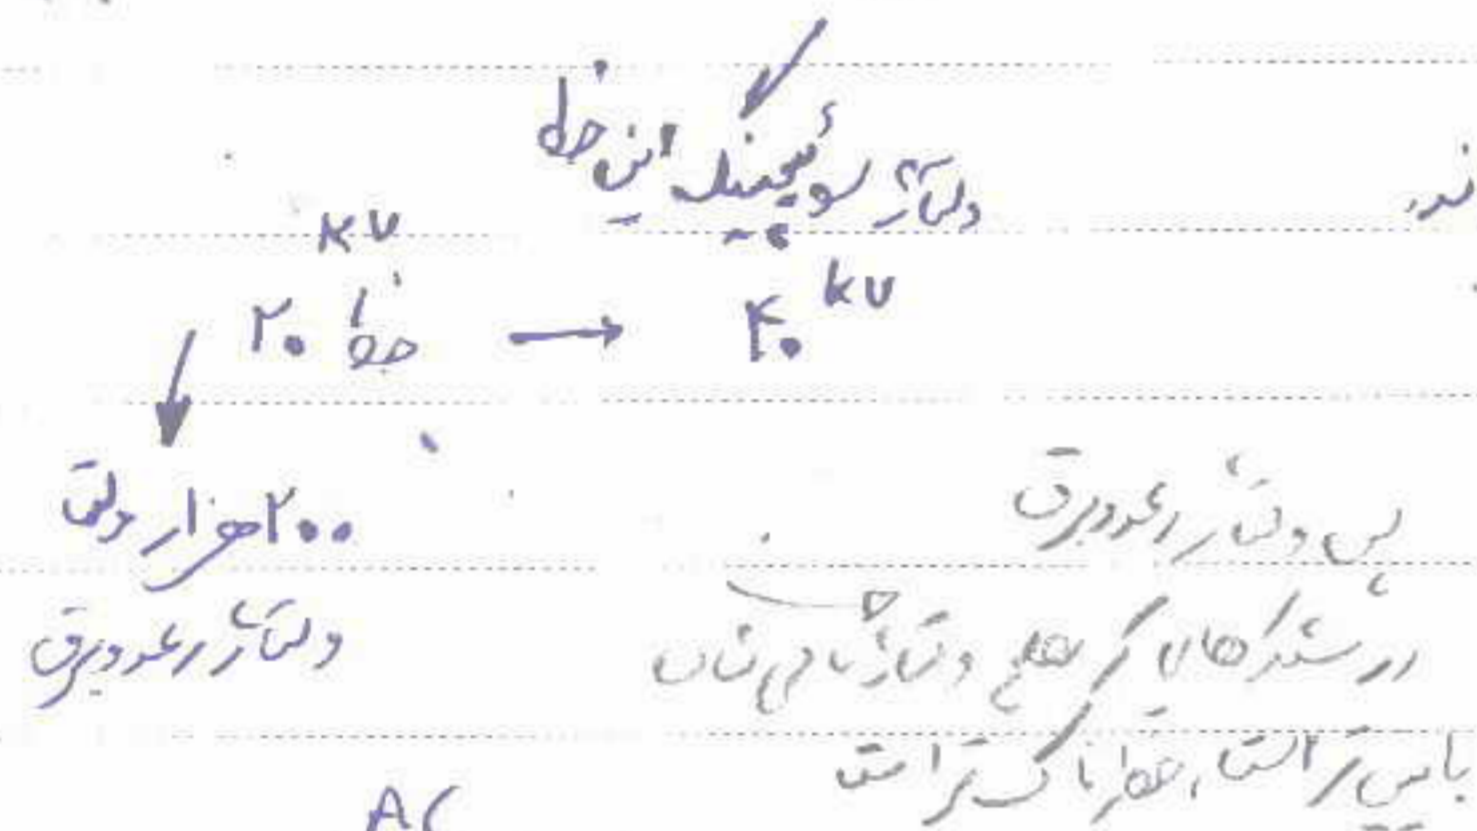 ولتاژ سوئیچینگ این خط
ند.
kv
خط ۲۰ → ۴۰ kv
۲۰۰ هزار ولت
ولتاژ رعد و برق
پس ولتاژ رعد و برق
در شبکه‌های که سطح ولتاژ نامی شان
پایین تر است، خطرناک تر است
AC